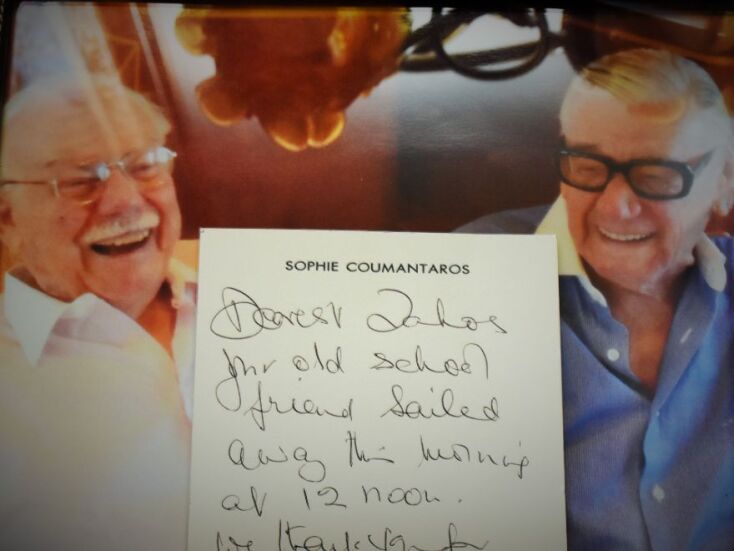 SOPHIE COUMANTAROS
Dearest Zahos
your old school
friend sailed
away this morning
at 12 noon.
We thank you for